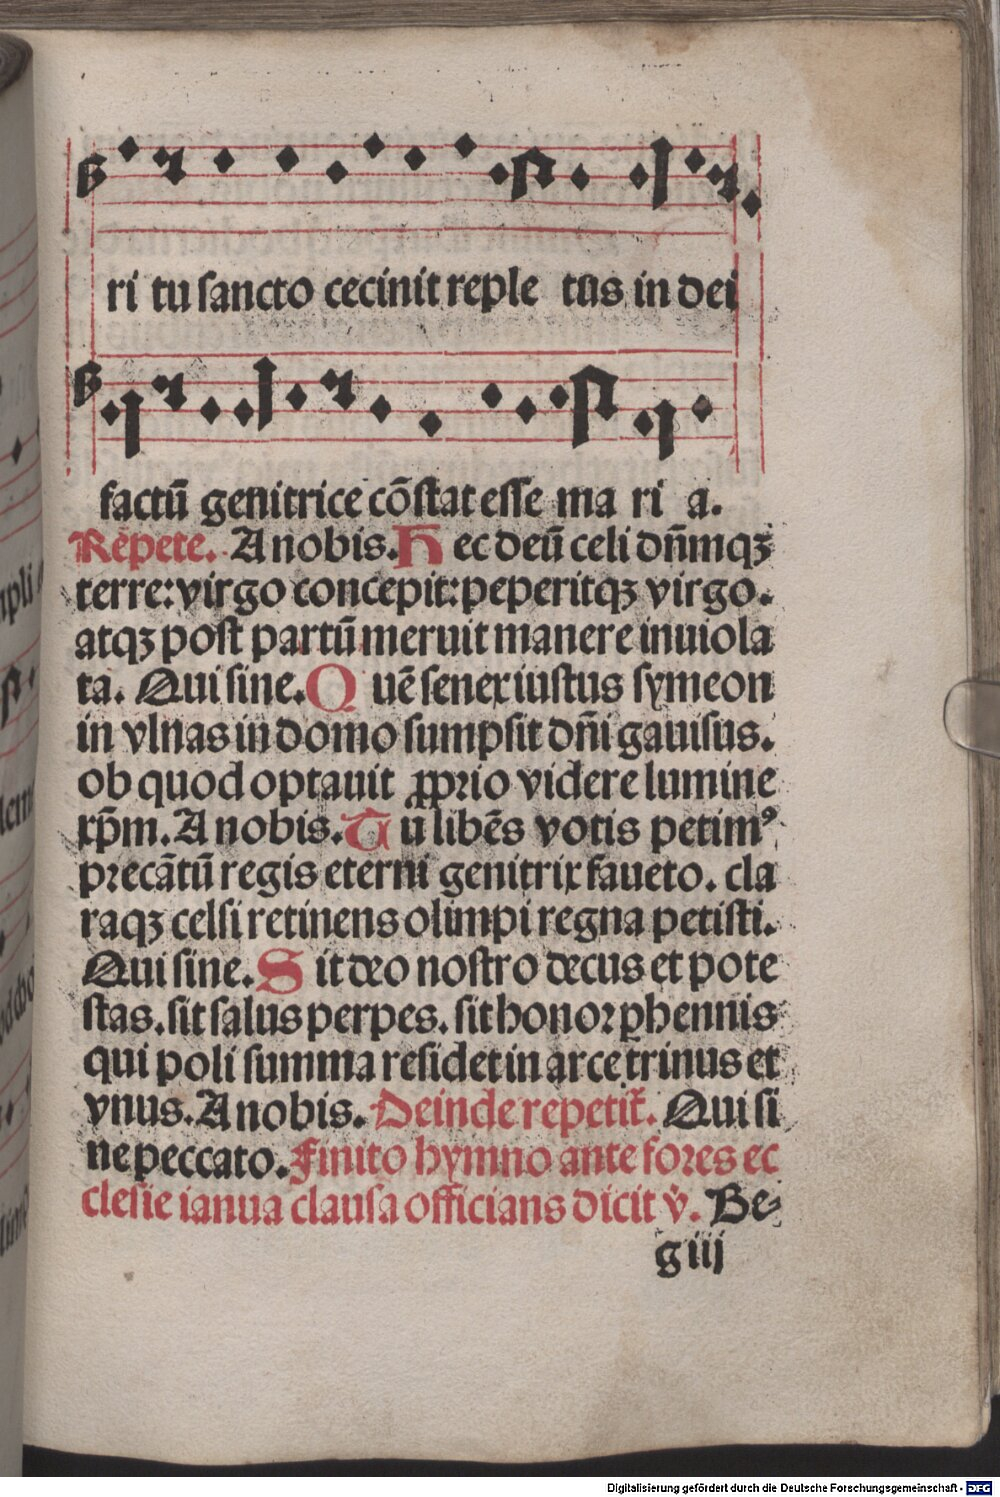 ri tu sancto cecinit reple tus in dei
factū genitrice cōstat esse ma ri a.
Repete. A nobis. Hec deū celi dn̄mqꝫ
terre: virgo concepit: peperitqꝫ virgo.
atqꝫ post partū meruit manere inuiola
ta. Qui sine. Quē senex iustus symeon
in vlnas in domo sumpsit dn̄i gauisus.
ob quod optauit ꝓprio videre lumine
xp̄m. A nobis. Tu libēs votis petimꝰ
precātū regis eterni genitrix faueto. cla
raqꝫ celsi retinens olimpi regna petisti.
Qui sine. Sit deo nostro decus et pote
stas. sit salus perpes. sit honor ꝑhennis
qui poli summa residet in arce trinus et
vnus. A nobis. Deinde repetit̄. Qui si
ne peccato. Finito hymno ante fores ec
clesie ianua clausa officians dicit v̇. Be⸗
g iij
pli
Digitalisierung gefördert durch die Deutsche Forschungsgemeinschaft - DFG